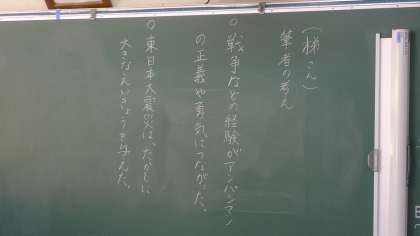 (梯さん)
筆者の考え
○戦争などの経験がアンパンマン
の正義や勇気につながった。
○東日本大震災は、たかしに
大きなえいきょうを与えた。